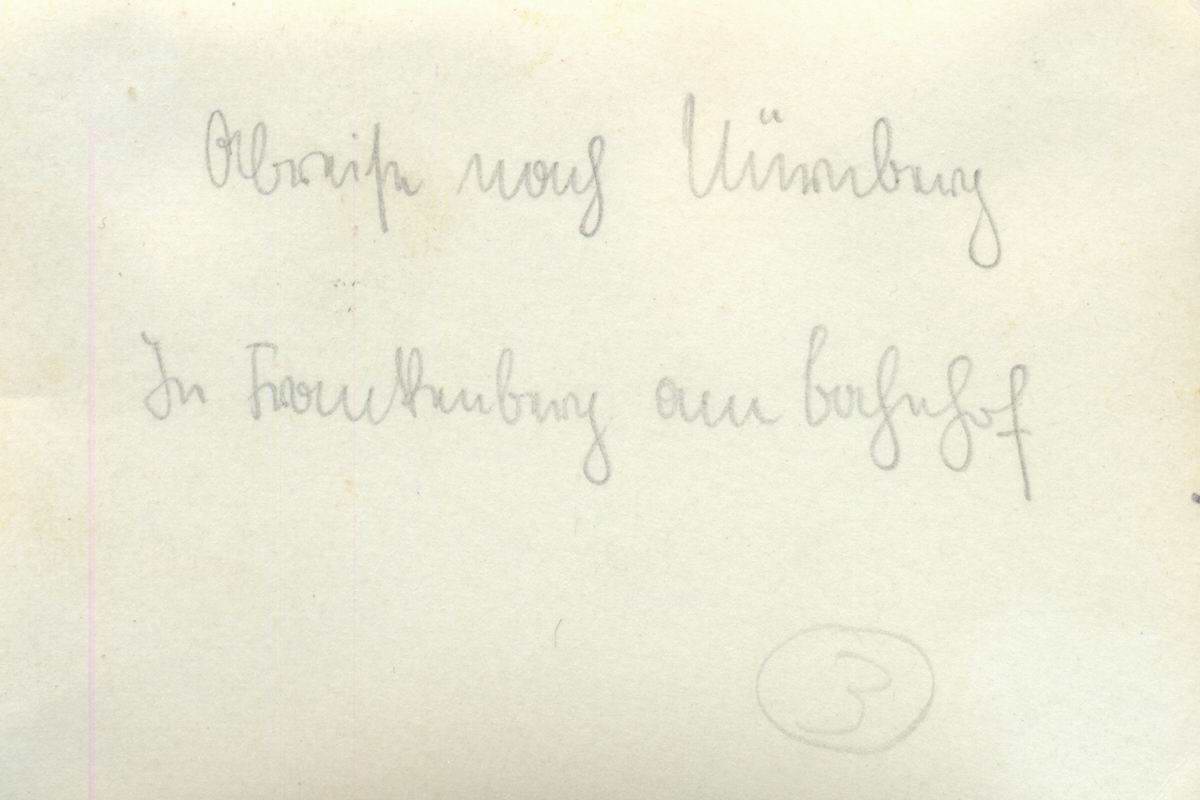 Abreise nach Nürnberg
In Frankenberg am Bahnhof
3